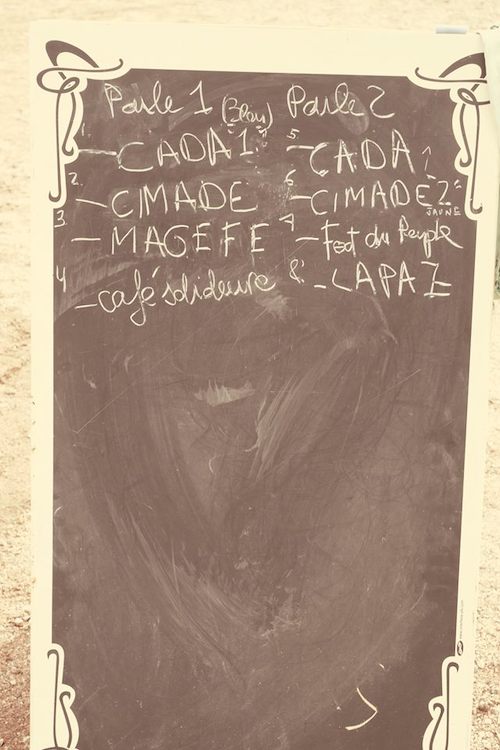 Poule 1 (Bleu) Poule 2
1. - CADA 1
5 - CADA 1
2. - CIMADE
6 - CIMADE 2 JAUNE
3. - MAGEFE
7 - Foot du Peuple
4 - café solidaire
8. - LAPAZ